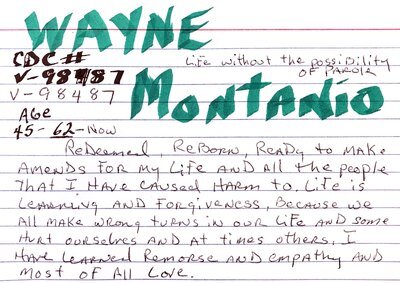 WAYNE
CDC#
LIFE WITHOUT THE POSSIBILITY
OF PAROLE
V-98487
V-98487
MONTANIO
AGE
45-62-NOW
REDEEMED, REBORN, READY TO MAKE
AMENDS FOR MY LIFE AND ALL THE PEOPLE
THAT I HAVE CAUSED HARM TO. LIFE IS
LEARNING AND FORGIVENESS, BECAUSE WE
ALL MAKE WRONG TURNS IN OUR LIFE AND SOME
HURT OURSELVES AND AT TIMES OTHERS. I
HAVE LEARNED REMORSE AND EMPATHY AND
MOST OF ALL LOVE.